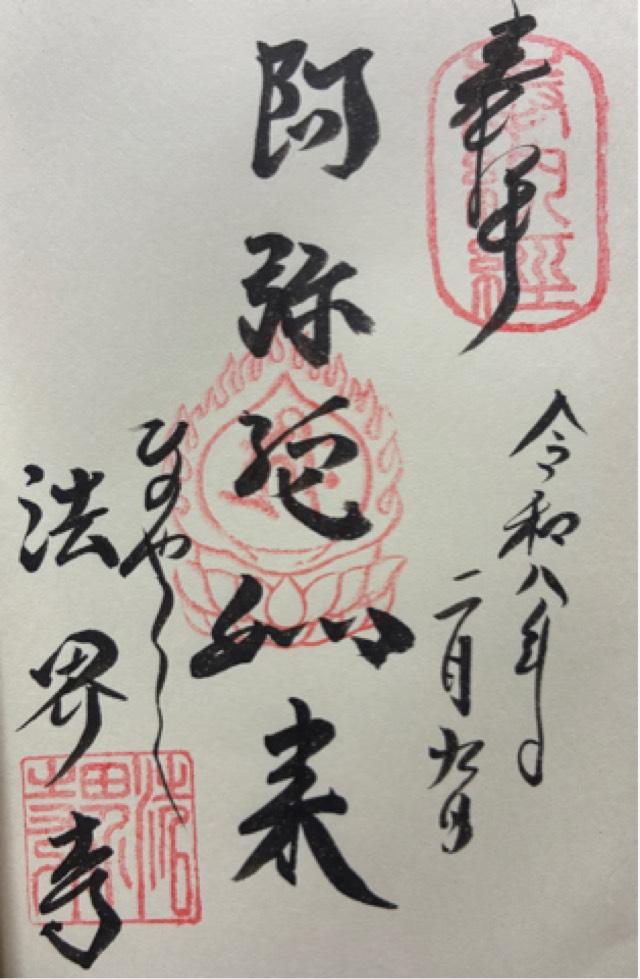 奉拝
奉納経
令和八年
二月九日
阿弥陀如来
ひのやくし
法界寺
法界寺